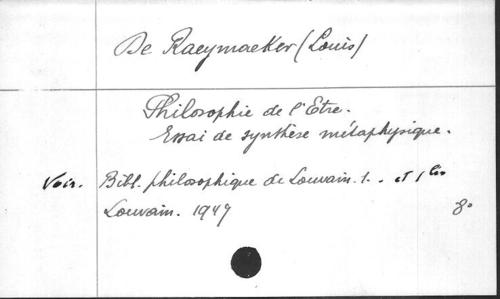 De Raeymaeker (Louis)
Philosophie de l'Etre.
Essai de synthèse métaphysique.
Voir. Bibl. philosophique de Louvain. 1. et 1
Louvain. 1947 8o